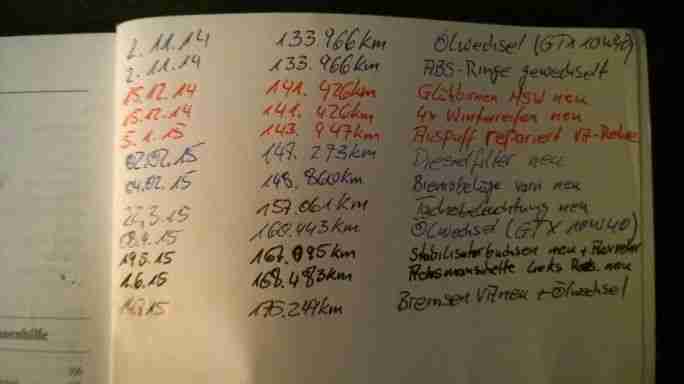 2.11.14 133.966km Ölwechsel (GTX 10W40)
2.11.14 133.966km ABS-Ringe gewechselt
15.12.14 141.426km Glühbirnen NSW neu
15.12.14 141.426km 4x Winterreifen neu
5.1.15 143.947km Auspuff repariert
02.02.15 147.273km Dieselfilter neu
04.02.15 148.860km Bremsbeläge vorn neu
22.3.15 157.061km Tachobeleuchtung neu
08.4.15 160.443km Ölwechsel (GTX 10W40)
19.5.15 167.095km Stabilisatorbuchsen neu +
1.6.15 168.483km Achsmanschette Links neu
15 175.249km Bremsen VA neu + Ölwechsel
nenhilfe